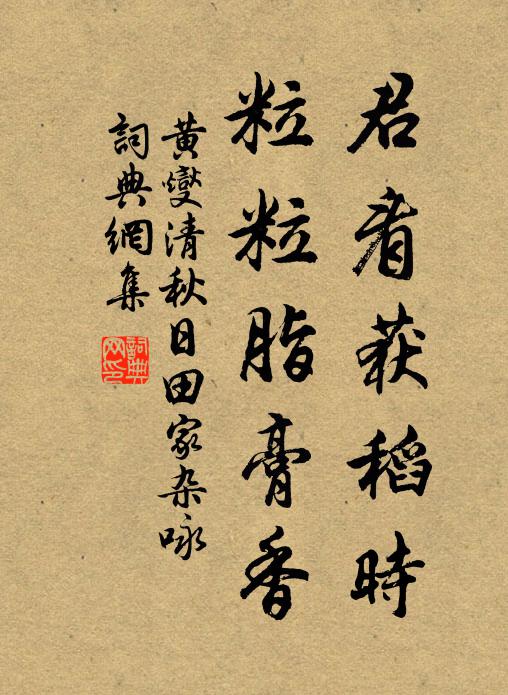 君看获稻時
粒粒脂膏香
黄燮清秋日田家杂咏
詞典網集
詞典
网印